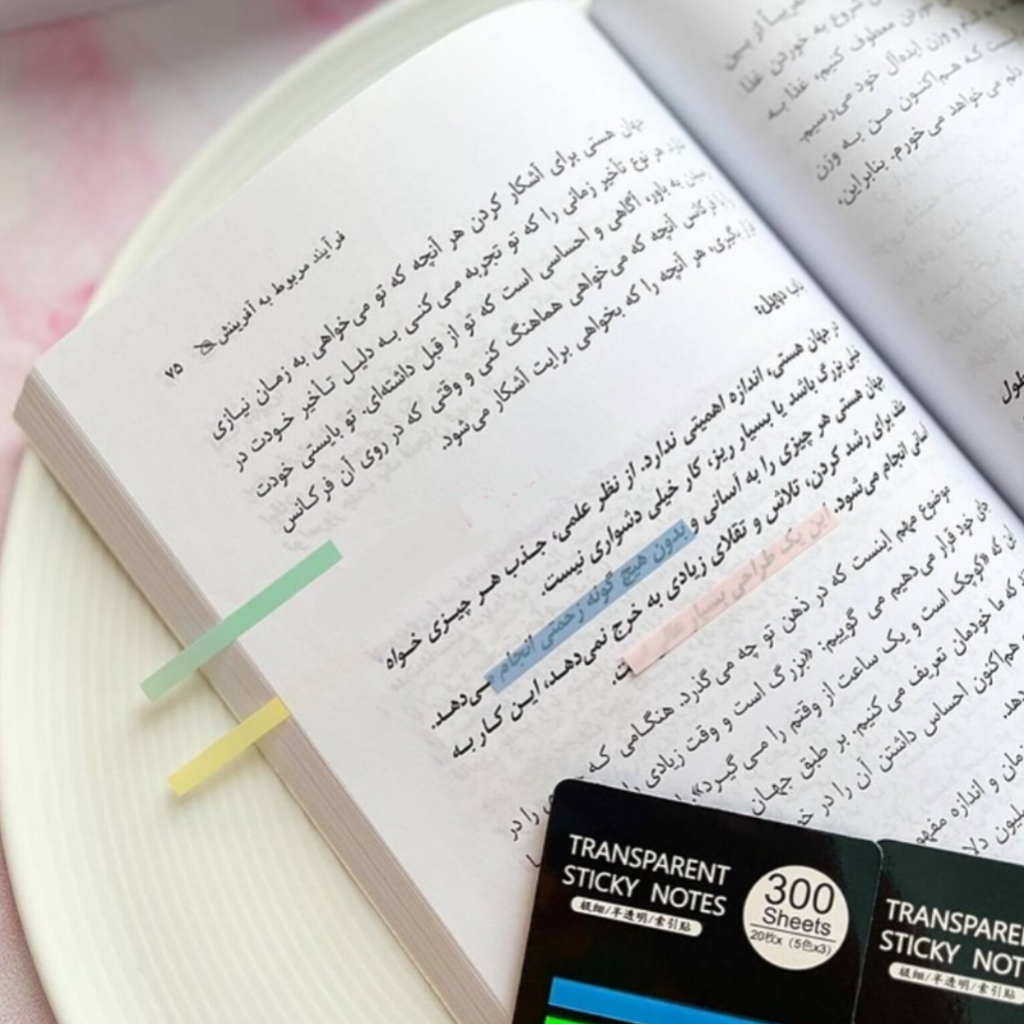 ۷۵ فرآیند مربوط به آفرینش
جهان هستی برای آشکار کردن هر آنچه که تو می‌خواهی به زمان نیازی
هر نوع تأخیر زمانی را که تو تجربه می‌کنی به دلیل تأخیر خودت در
به باور، آگاهی و احساسی است که تو از قبل داشته‌ای. تو بایستی خودت
فرکانس آنچه که می‌خواهی هماهنگ کنی و وقتی که در روی آن فرکانس
هر آنچه را که بخواهی برایت آشکار می‌شود.
باب دویل:
در جهان هستی، اندازه اهمیتی ندارد. از نظر علمی، جذب هر چیزی خواه
خیلی بزرگ باشد یا بسیار ریز، کار خیلی دشواری نیست.
جهان هستی هر چیزی را به آسانی و بدون هیچ گونه زحمتی انجام می‌دهد.
برای رشد کردن، تلاش و تقلای زیادی به خرج نمی‌دهد، این کار به
آسانی انجام می‌شود. این یک طراحی بسیار
موضوع مهم اینست که در ذهن تو چه می‌گذرد. هنگامی که
جای خود قرار می‌دهیم می گوییم: «بزرگ است و وقت زیادی را
این که «کوچک است و یک ساعت از وقتم را می‌گیرد»
که ما خودمان تعریف می کنیم. بر طبق جهان
هم‌اکنون احساس داشتن آن را در
زمان و اندازه
شروع به خوردن غذا
خوردن معطوف کنیم، غذا به
وزن ایده‌آل خود می‌رسیم.
که هم‌اکنون من به وزن
دلم می‌خواهد می خورم. بنابراین،
طول
TRANSPARENT
STICKY NOTES
极细/半透明/索引贴
300
Sheets
20枚x (5色x3)
TRANSPARE
STICKY NOT
极细/半透明/索引贴